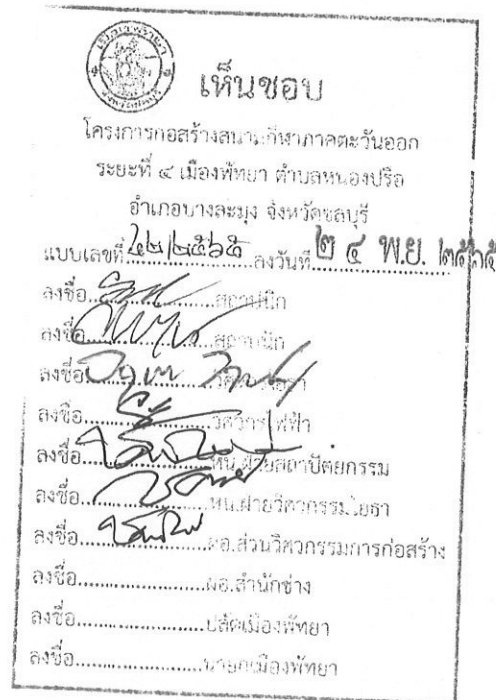 เห็นชอบ
โครงการก่อสร้างสนามกีฬาภาคตะวันออก
ระยะที่ ๔ เมืองพัทยา ตำบลหนองปรือ
อำเภอบางละมุง จังหวัดชลบุรี
แบบเลขที่ ๔๒/๒๕๖๕ ลงวันที่ ๒ ๔ พ.ย. ๒๕๖๕
ลงชื่อ..........สถาปนิก
ลงชื่อ..........สถาปนิก
ลงชื่อ..........วิศวกรโยธา
ลงชื่อ..........วิศวกรไฟฟ้า
ลงชื่อ..........หน.ฝ่ายสถาปัตยกรรม
ลงชื่อ..........หน.ฝ่ายวิศวกรรมโยธา
ลงชื่อ..........ผอ.ส่วนวิศวกรรมการก่อสร้าง
ลงชื่อ....................ผอ.สำนักช่าง
ลงชื่อ....................ปลัดเมืองพัทยา
ลงชื่อ....................นายกเมืองพัทยา